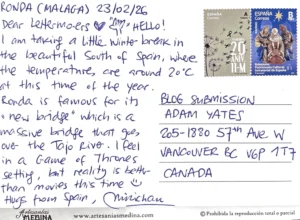 RONDA (MALAGA) 23/02/26
Dear Lettermo-ers HELLO!
I am taking a little winter break in
the beautiful South of Spain, where
the temperature, are around 20°C
at this time of the year.
Ronda is famous for its
"new bridge" which is a
massive bridge that goes
over the Tajo River. I feel
in a Game of Thrones
setting, but reality is better
than movies this time
Hugs from Spain, Mirichan
ESPAÑA
ESPAÑA
11-M
BLOG SUBMISSION
ADAM YATES
205-1880 57th AVE W
VANCOUVER BC V6P 1T7
CANADA
Artesanías
MEDINA
www.artesaniasmedina.com
Prohibida la reproducción total o parcial